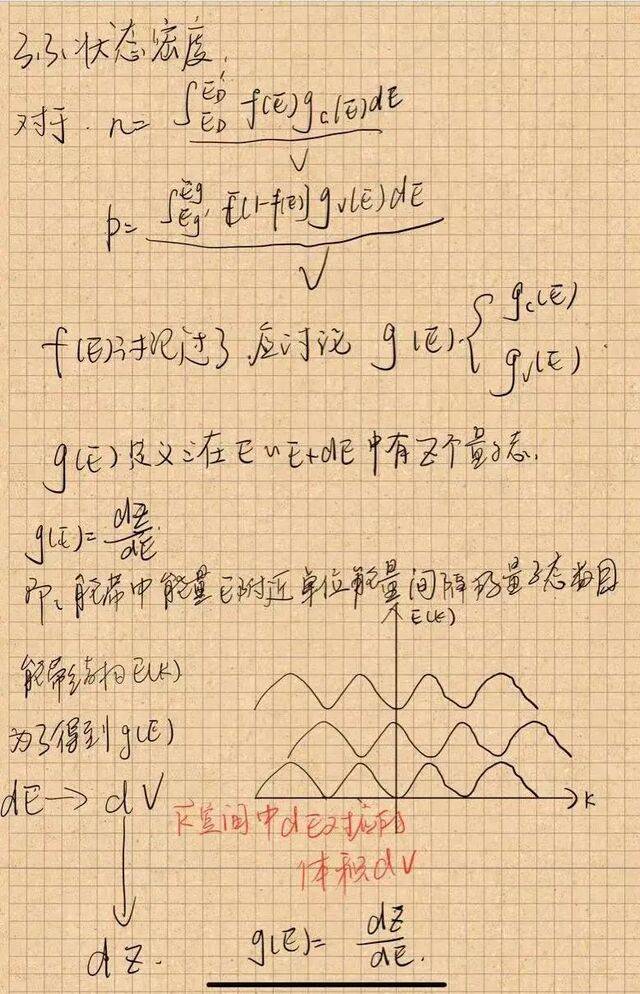 3.3. 状态密度.
对于. n= ∫_{ED}^{ED'} f(E) g_c(E) dE
p= ∫_{Eg'}^{Eg} [1-f(E)] g_v(E) dE
f(E)讨论过了, 应讨论 g(E) { g_c(E)
g_v(E)
g(E)定义: 在E~E+dE中有Z个量子态.
g(E)= dZ/dE.
即: 能带中能量E附近单位能量间隔的量子态数目
E(K)
能带结构E(K)
为了得到g(E)
dE→dV
K
K空间中dE对应的
体积dV
dZ.
g(E)= dZ/dE.